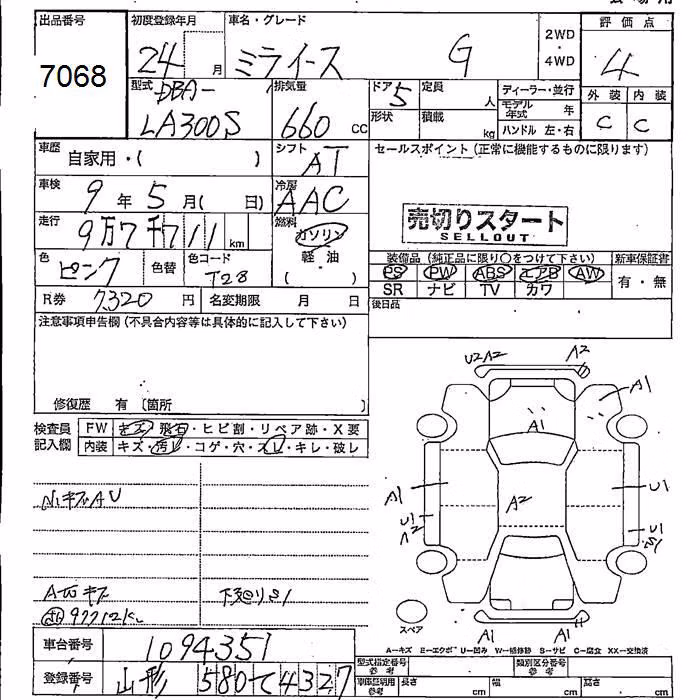 出品番号
7068
初度登録年月
24 月
車名・グレード
ミライース G
2WD
・
4WD
評価点
4
外装 内装
C C
型式
DBA-
LA300S
排気量
660 CC
ドア 5
定員 人
形状
積載 kg
ディーラー・並行
モデル年式 年
ハンドル 左・右
車歴
自家用・( )
シフト
AT
セールスポイント(正常に機能するものに限ります)
車検
9年5月( 日)
冷房
AAC
売切りスタート
SELLOUT
走行
9万7千711 km
燃料
ガソリン
軽・油
( )
色
ピンク
色替
色コード
T28
装備品(純正品に限り○をつけて下さい)
PS PW ABS エアB AW
SR ナビ TV カワ
新車保証書
有・無
R券 7,320 円
名変期限 月 日
後日品
注意事項申告欄(不具合内容等は具体的に記入して下さい)
修復歴 有 〔箇所
検査員
記入欄
FW キズ・飛石・ヒビ割・リペア跡・X要
内装 キズ・汚レ・コゲ・穴・スレ・キレ・破レ
U2 A2 A2
A1
A1
A1
A2
U1
U1
A2
U1
S1
A1 A1
スペア
A-キズ E-エクボ U-凹み W-補修跡 S-サビ C-腐食 XX-交換済
車台番号
1094351
登録番号
山形 580 て 4327
型式指定番号
参考
類別区分番号
参考
車庫証明用
参考
長さ cm
幅 cm
高さ cm